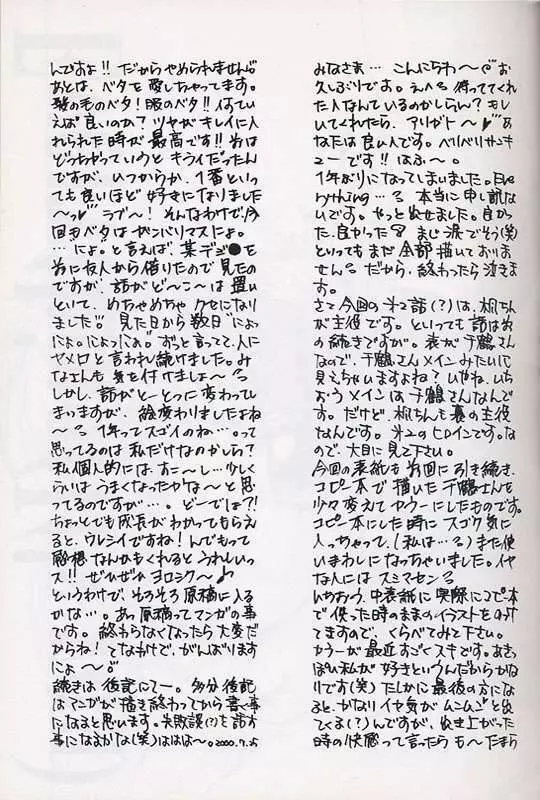 みなさま… こんにちわ〜 お
久しぶりです。え、待っててくれ
た人なんているのかしらん? もし
いてくれたら、アリガト〜 あ
なたは良い人です。ベリベリサンキ
ューです!! はふ〜。
1年ぶりになってしまいました。Eve
rything… 本当に申し訳な
いです。やっと出せました。良かっ
た、良かった まじ涙でそう(笑)
といってもまだ全部描いておりま
せん だから、終わったら泣きま
す。
さて今回の第2話(?)は、楓ちん
が主役です。といっても話は前
の続きですが。表が千鶴さん
なので、千鶴さんメインみたいに
見えちゃいますよね? いやね、いち
おうメインは千鶴さんなんで
す。だけど、楓ちんも裏の主役
なんです。第2のヒロインです。な
ので、大目に見て下さい。
今回の表紙も前回に引き続き、
コピー本で描いた千鶴さんを
少々変えてカラーにしたものです。
コピー本にした時にスゴク気に
入っちゃって、(私は…)また使
いまわしになっちゃいました。イヤ
な人にはスミマセン
いちおう、中表紙に実際にコピー本
で使った時のままのイラストをのけ
てますので、くらべてみて下さい。
カラーが最近すごくスキです。あきっ
ぽい私が好きというんだからかな
りです(笑) たしかに最後の方にな
ると、かなりイヤ気がムンムンと出
てくる(?)んですが、出き上がった
時の快感って言ったら も〜たまら
んですよ!! だからやめられません
あとは、ベタを愛しちゃってます。
髪の毛のベタ! 服のベタ!! 何てい
えば良いのか? ツヤがキレイに入
れられた時が最高です!! 前は
どっちかっていうとキライだったん
ですが、いつからか、1番といっ
ても良いほど好きになりました
〜っ ラブ〜! そんなわけで今
回もベタはガンバリマスにょ。
…"にょ"と言えば、某デジ●を
前に友人から借りたので見たの
ですが、話がど〜こ〜は置い
といて、めちゃめちゃクセになり
ました!! 見た日から数日"にょっ
にょ。にょっにょ。"ずっと言ってて、人に
ヤメロと言われ続けました。み
なさんも気を付けましょ〜
しかし、話がとーとつに変わってし
まいますが、絵変わりましたよね
〜 1年ってスゴイのね…。って
思ってるのは私だけなのかしら?
私個人的には、すこ〜し…少しく
らいはうまくなったかな〜と思
ってるのですが…。どーでしょ?!
ちょっとでも成長がわかってもらえ
ると、ウレシイですね! んでもって
感想なんかもくれるとうれしいっ
ス!! ぜひぜひヨロシク〜♪
というわけで、そろそろ原稿に入る
かな…。あっ原稿ってマンガの事
です。終わらなくなったら大変だ
からね! てなわけで、がんばります
にょ〜
続きは後記にてー。多分後記
はマンガが描き終わってから書く事
になると思います。失敗談(?)も話す
事になるかな(笑)ははは〜。2000.7.25